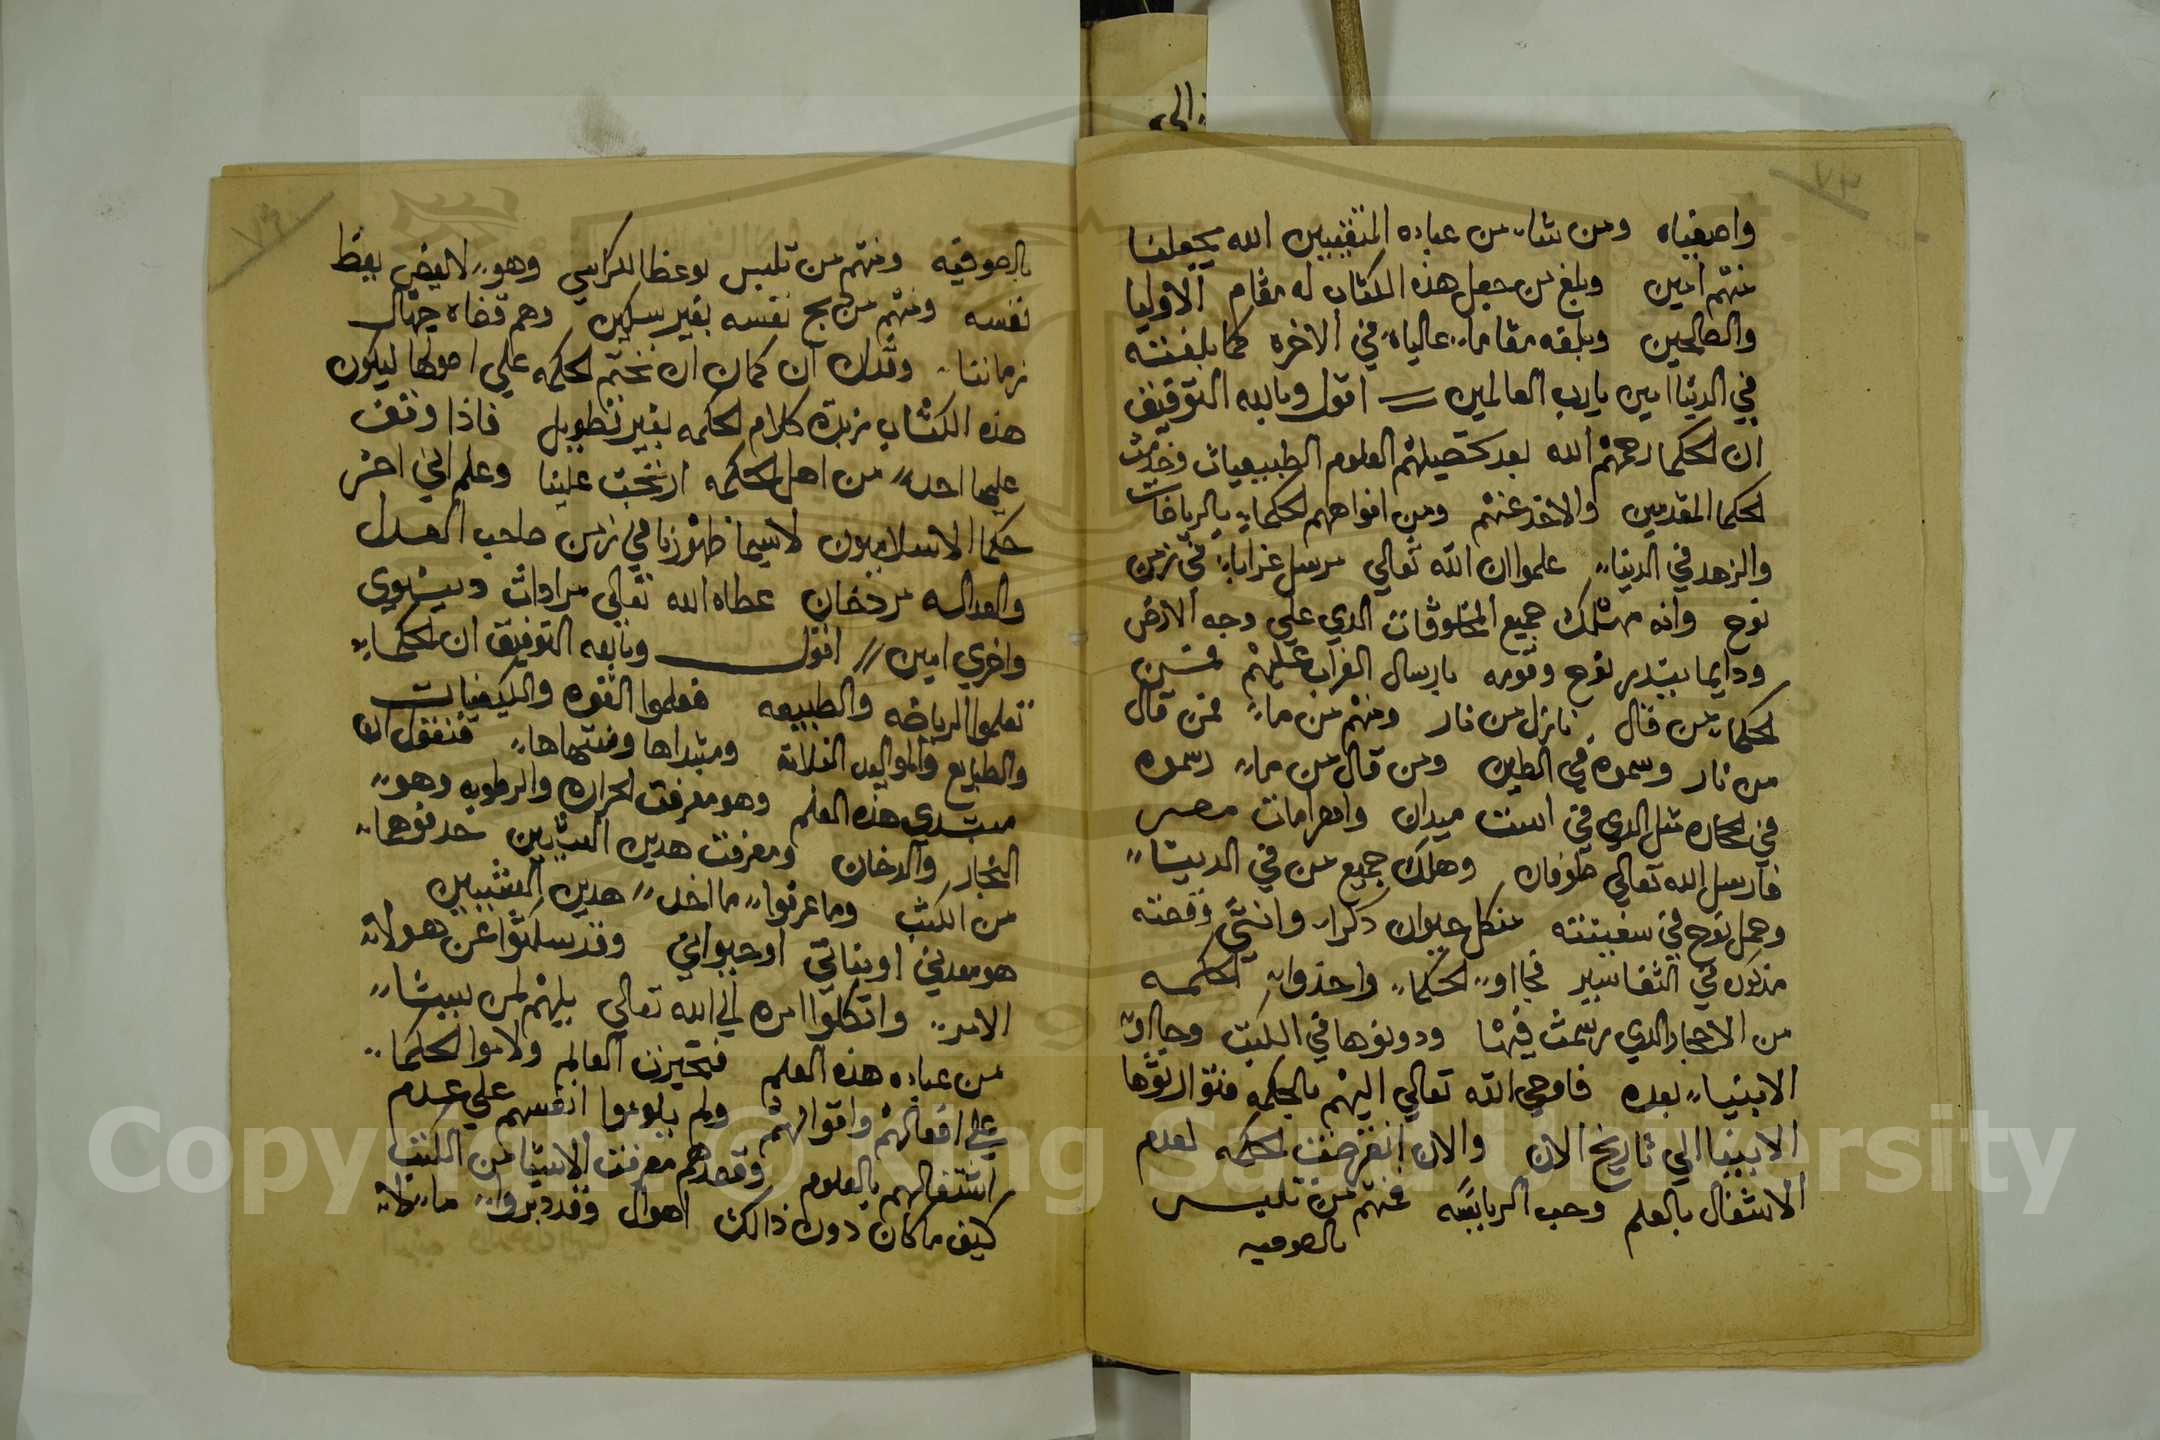 واصفياه ومن شاء من عباده المتقيين الله يجعلنا
منهم امين وبلغ من جعل هذه الكتاب له مقام الاوليا
والصالحين وبلغه مقاما عالياء في الاخره كما بلغته
في الدنيا امين يا رب العالمين اقول وبالله التوفيق
ان الحكما رحمهم الله بعد تحصيلهم العلوم الطبيعيات وخدمت
الحكما المقدمين والاخذ عنهم ومن افواههم الحكماء بالرياضات
والزهد في الدنياء علموا ان الله تعالي مرسل عذاباء في زمن
نوح وانه مهلك جميع المخلوقات الدي علي وجه الارض
ودايما ينذر نوح وقومه بارسال العذاب عليهم فمن
الحكماء من قال نازل من نار ومنهم من ماء فمن قال
من نار وسموه في الطين ومن قال من ماء رسموه
في الحجاره مثل الدي في است ميدان واهرامات مصر
فارسل الله تعالي طوفان وهلك جميع من في الدنياء
وحمل نوح في سفينته من كل حيوان ذكراء وانثي وقصته
مذكور في التفاسير فجااو الحكماء واخذوا الحكمه
من الاحجار الدي رسمت فيها ودونوها في الكتب وجاات
الانبياء بعده فاوحي الله تعالي اليهم بالحكمه فتوارثوها
الانبيا الي تاريخ الان والان انقرضت الحكمه لعدم
الاشتغال بالعلم وحب الرياسه فمنهم من تلبس
بالصوفيه
بالصوفيه ومنهم من تلبس لوعظ الكراسي وهو لايعض يعظ
نفسه ومنهم من دبح نفسه بغير سكين وهم قضاه جهال
زماننا وقد ان كمان ان نختم الحكمه علي اصولها ليكون
هذه الكتاب زبدة كلام الحكمه بغير تطويل فاذا وقف
عليها احد من اهل الحكمه ارتجت علينا وعلم اني اخر
حكما الاسلاميون لاسيما ظهورنا في زمن صاحب العدل
والعداله مردخان عطاه الله تعالي مرادات دنيوي
واخري امين اقول وبالله التوفيق ان الحكماء
تعلموا الرياضه والطبيعه فعلموا القوه والكيفيات
والطبايع والمواليد الثلاثه ومبتداها ومنتهاها فنقول ان
مبتدي هذه العلم وهو معرفت الحراره والرطوبه وهو
البخار والدخان ومعرفت هدين الشيين حدفوها
من الكتب وما عرفوا ما اخد هدين الشيين
هو معدني او نباتي او حيواني وقد سكتوا عن هولاء
الامر واتكلوا امره الي الله تعالي يلهم لمن يشاء
من عباده هذه العلم فتحيرت العالم ولاموا الحكماء
علي افعالهم واقوالهم ولم يلوموا انفسهم علي عدم
اشتغالهم بالعلوم وقصدهم معرفت الاشيا من الكتب
كيف ما كان دون ذالك اهوال وقد دبروا ماء لا